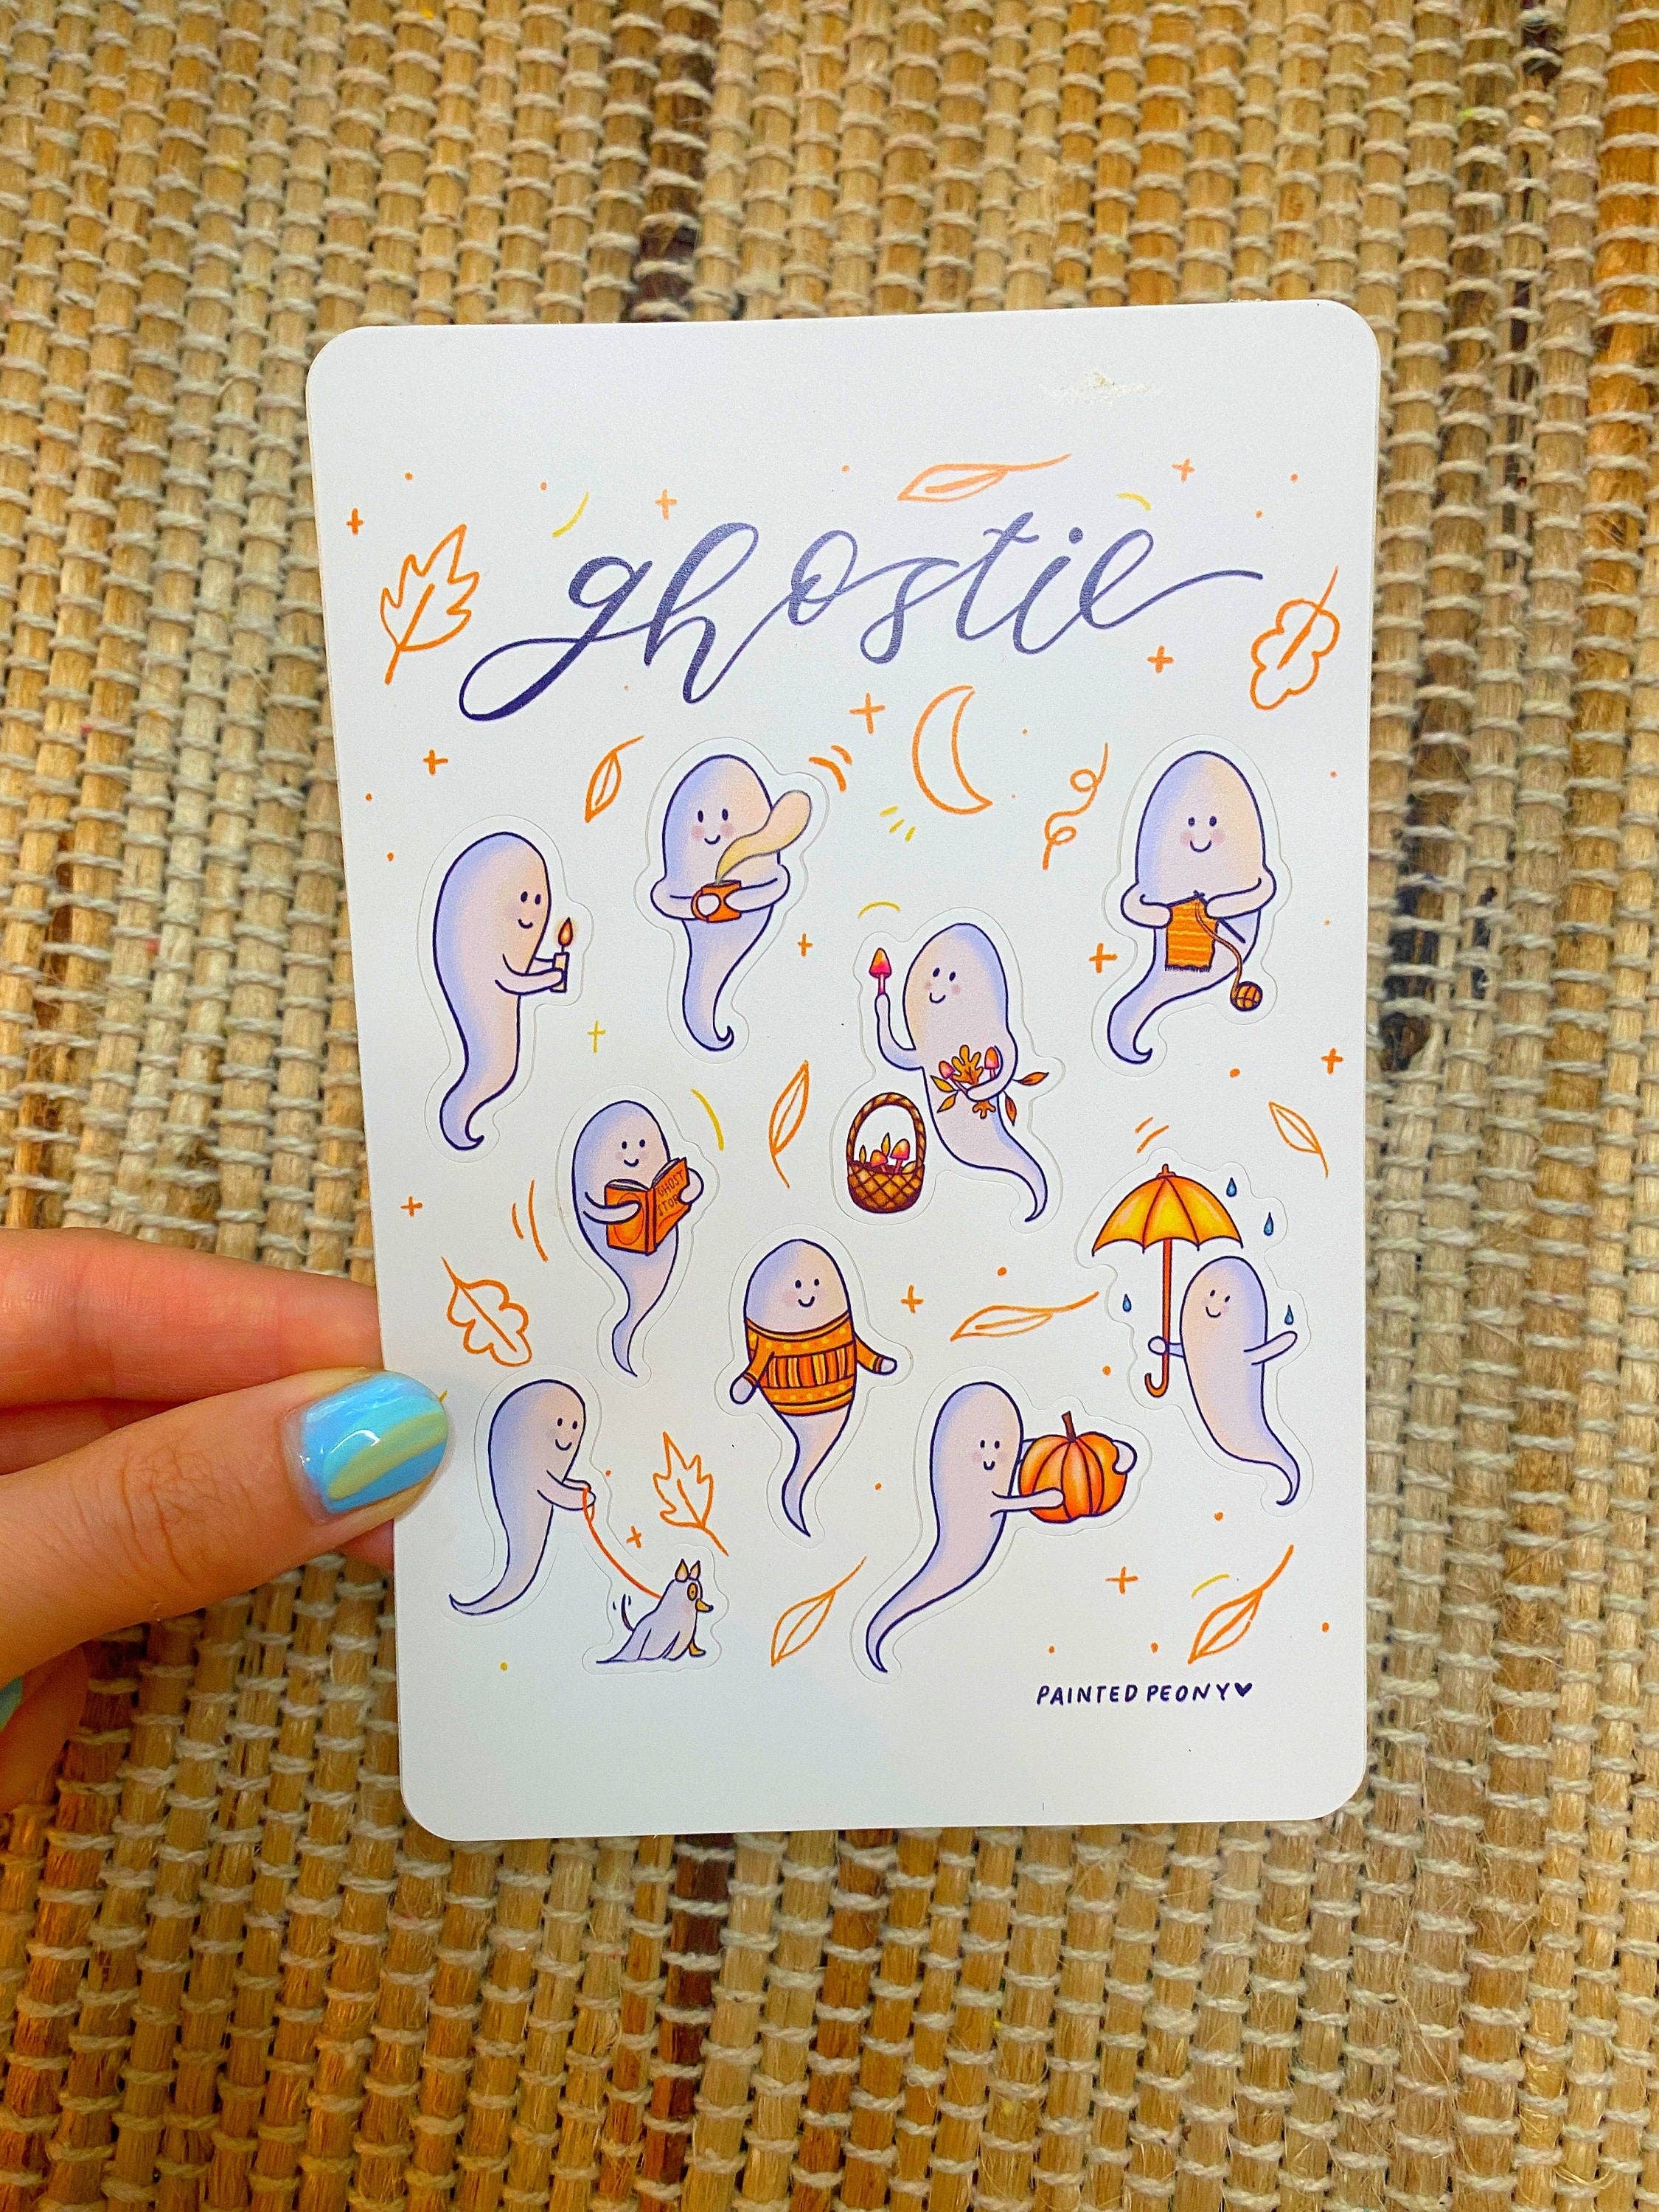 ghostie
GHOST
STOR
PAINTED PEONY♥